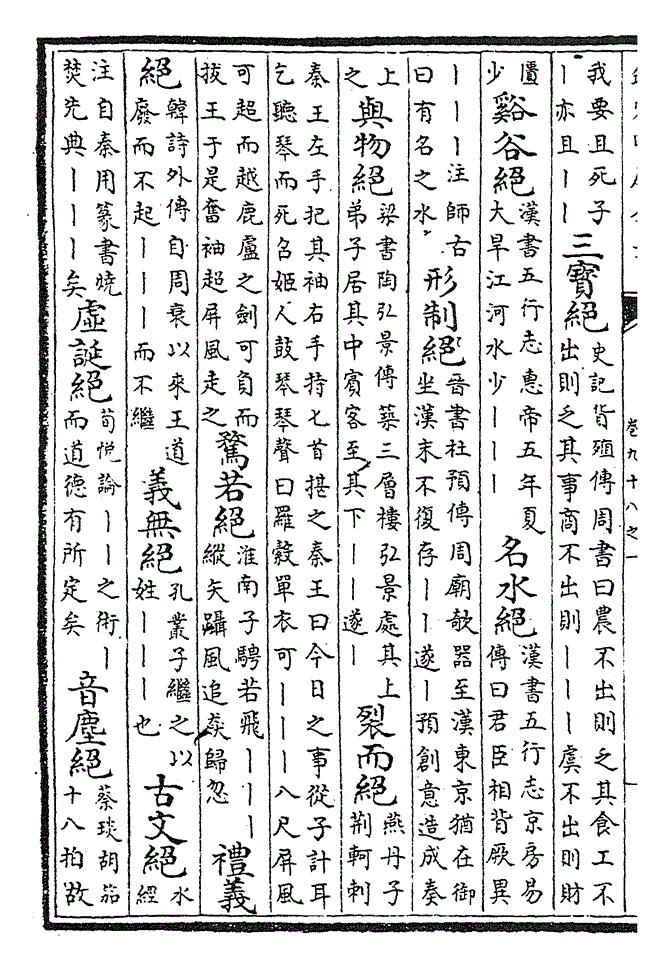 卷九十八之一
我要且死子
丨亦且丨丨
三寶絕
史記貨殖傳周書曰農不出則乏其食工不
出則乏其事商不出則丨丨丨虞不出則財
匱
少
谿谷絕
漢書五行志惠帝五年夏
大旱江河水少丨丨丨
名水絕
漢書五行志京房易
傳曰君臣相背厥異
丨丨丨注師古
曰有名之水
形制絕
晉書杜預傳周廟欹器至漢東京猶在御
坐漢末不復存丨丨遂丨預創意造成奏
上
之
與物絕
梁書陶弘景傳築三層樓弘景處其上
弟子居其中賓客至其下丨丨遂丨
裂而絕
燕丹子
荆軻刺
秦王左手把其袖右手持匕首揕之秦王曰今日之事從子計耳
乞聽琴而死召姬人鼓琴琴聲曰羅縠單衣可丨丨丨八尺屏風
可超而越鹿盧之劍可負而
拔王于是奮袖超屏風走之
驁若絕
淮南子騁若飛丨丨丨
縱矢躡風追猋歸忽
禮義
絕
韓詩外傳自周衰以來王道
廢而不起丨丨丨而不繼
義無絕
孔叢子繼之以
姓丨丨丨也
古文絕
水
經
注自秦用篆書燒
焚先典丨丨丨矣
虛誕絕
荀悅論丨丨之術丨
而道德有所定矣
音塵絕
蔡琰胡笳
十八拍故